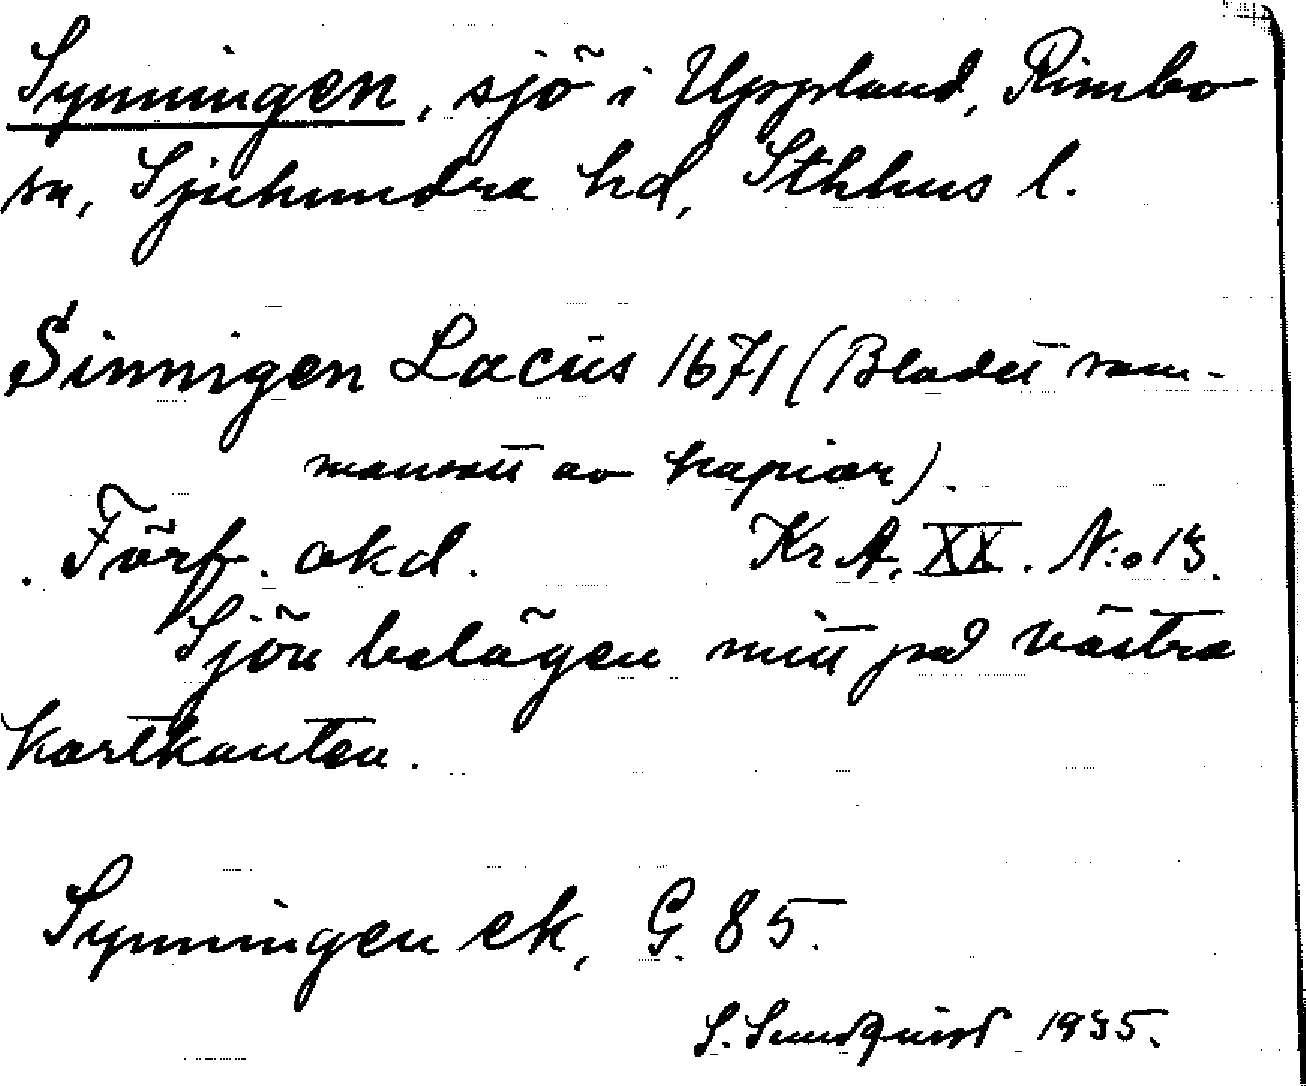 Synningen, sjö i Uppland, Rimbo
sn, Sjuhundra hd, Sthlms l.
Sinnigen Lacus 1671 (Bladet sam-
mansatt av kopior).
Förf. okd. Kr A, XX. N:o 13.
Sjön belägen mitt på västra
kartkanten.
Synningen ek, G. 85.
S. Sundquist 1935.